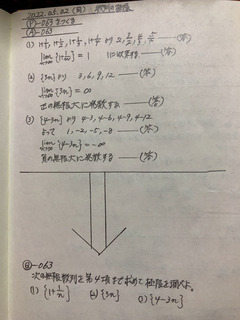 2022.05.02 (月) 数列の極限
(P)-063をつくる
(A)-063
(1) 1+1/1, 1+1/2, 1+1/3, 1+1/4 より 2, 3/2, 4/3, 5/4 ——(答)
lim {1+1/n} = 1 1に収束する ——(答)
(2) {3n} より 3, 6, 9, 12 ——(答)
lim {3n} = ∞
正の無限大に発散する ——(答)
(3) {4-3n} より 4-3, 4-6, 4-9, 4-12
よって 1, -2, -5, -8 ——(答)
lim {4-3n} = -∞
負の無限大に発散する ——(答)
-063
次の無限数列を第4項まで求めて極限を調べよ。
(1) {1+1/n} (2) {3n} (3) {4-3n}